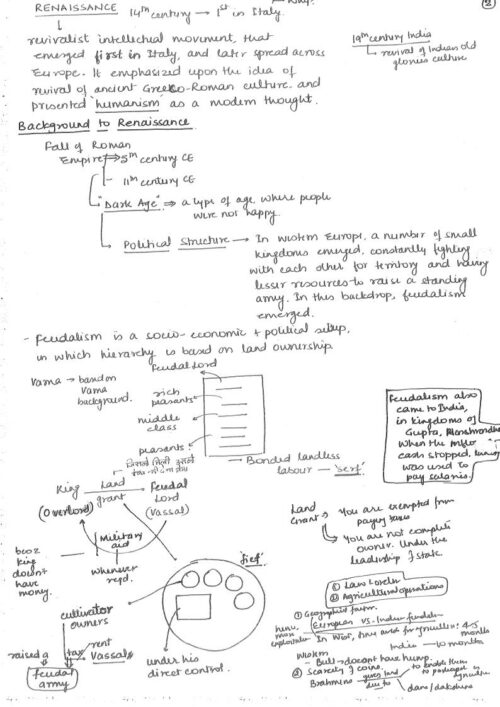 RENAISSANCE 14th century → 1st in Italy.
revivalist intellectual movement, that
emerged first in Italy, and later spread across
Europe. It emphasized upon the idea of
revival of ancient Greeko-Roman culture. and
presented 'humanism' as a modern thought.
19th century India
revival of Indian old
glorious culture
Background to Renaissance
Fall of Roman
Empire ⇒ 5th century CE
- 11th century CE
"Dark Age" ⇒ a type of age where people
were not happy.
Political Structure → In western Europe, a number of small
kingdoms emerged, constantly fighting
with each other for territory and having
lesser resources to raise a standing
army. In this backdrop, feudalism
emerged.
- Feudalism is a socio-economic + political setup,
in which hierarchy is based on land ownership.
Feudal Lord
Varna → based on
Varna
background.
rich
peasants
middle
class
peasants
Bonded landless
labour → 'serf'
Feudalism also
came to India,
in kingdoms of
Gupta,
When the
cash stopped,
was used to
pay salaries.
King Land grant → Feudal
Lord
(Overlord) (Vassal)
Military
aid
becoz
king
doesn't
have
money.
whenever
reqd.
Land
Grant → You are exempted from
paying taxes
→ You are not complete
owner. Under the
leadership of state.
'fief'
cultivator
owners
under his
direct control.
raised a tax rent Vassals
feudal
army
① Law & order
② Agricultural operations
① Geographical factor.
European vs Indian feudalism
hence
more
exploitation In West, time avail. for agriculture: 4-5
months
India → 10 months
Western
- Bull → doesn't have hump.
② Scarcity of coins.
Brahmins gives land → to enable them
to participate in
due to → dana/dakshina